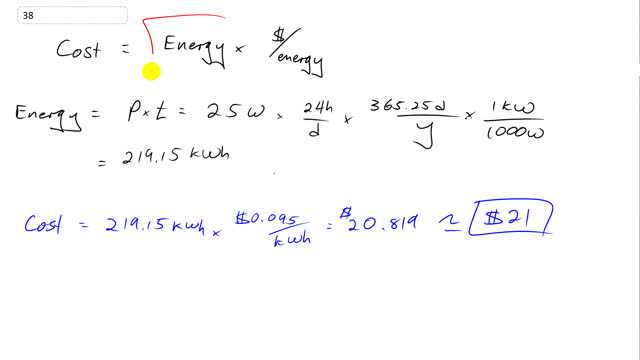 38
Cost = Energy × $/energy
Energy = P×t = 25W × 24h/d × 365.25d/y × 1kW/1000W
= 219.15 kWh
Cost = 219.15 kWh × $0.095/kWh = $20.819 ≃ $21